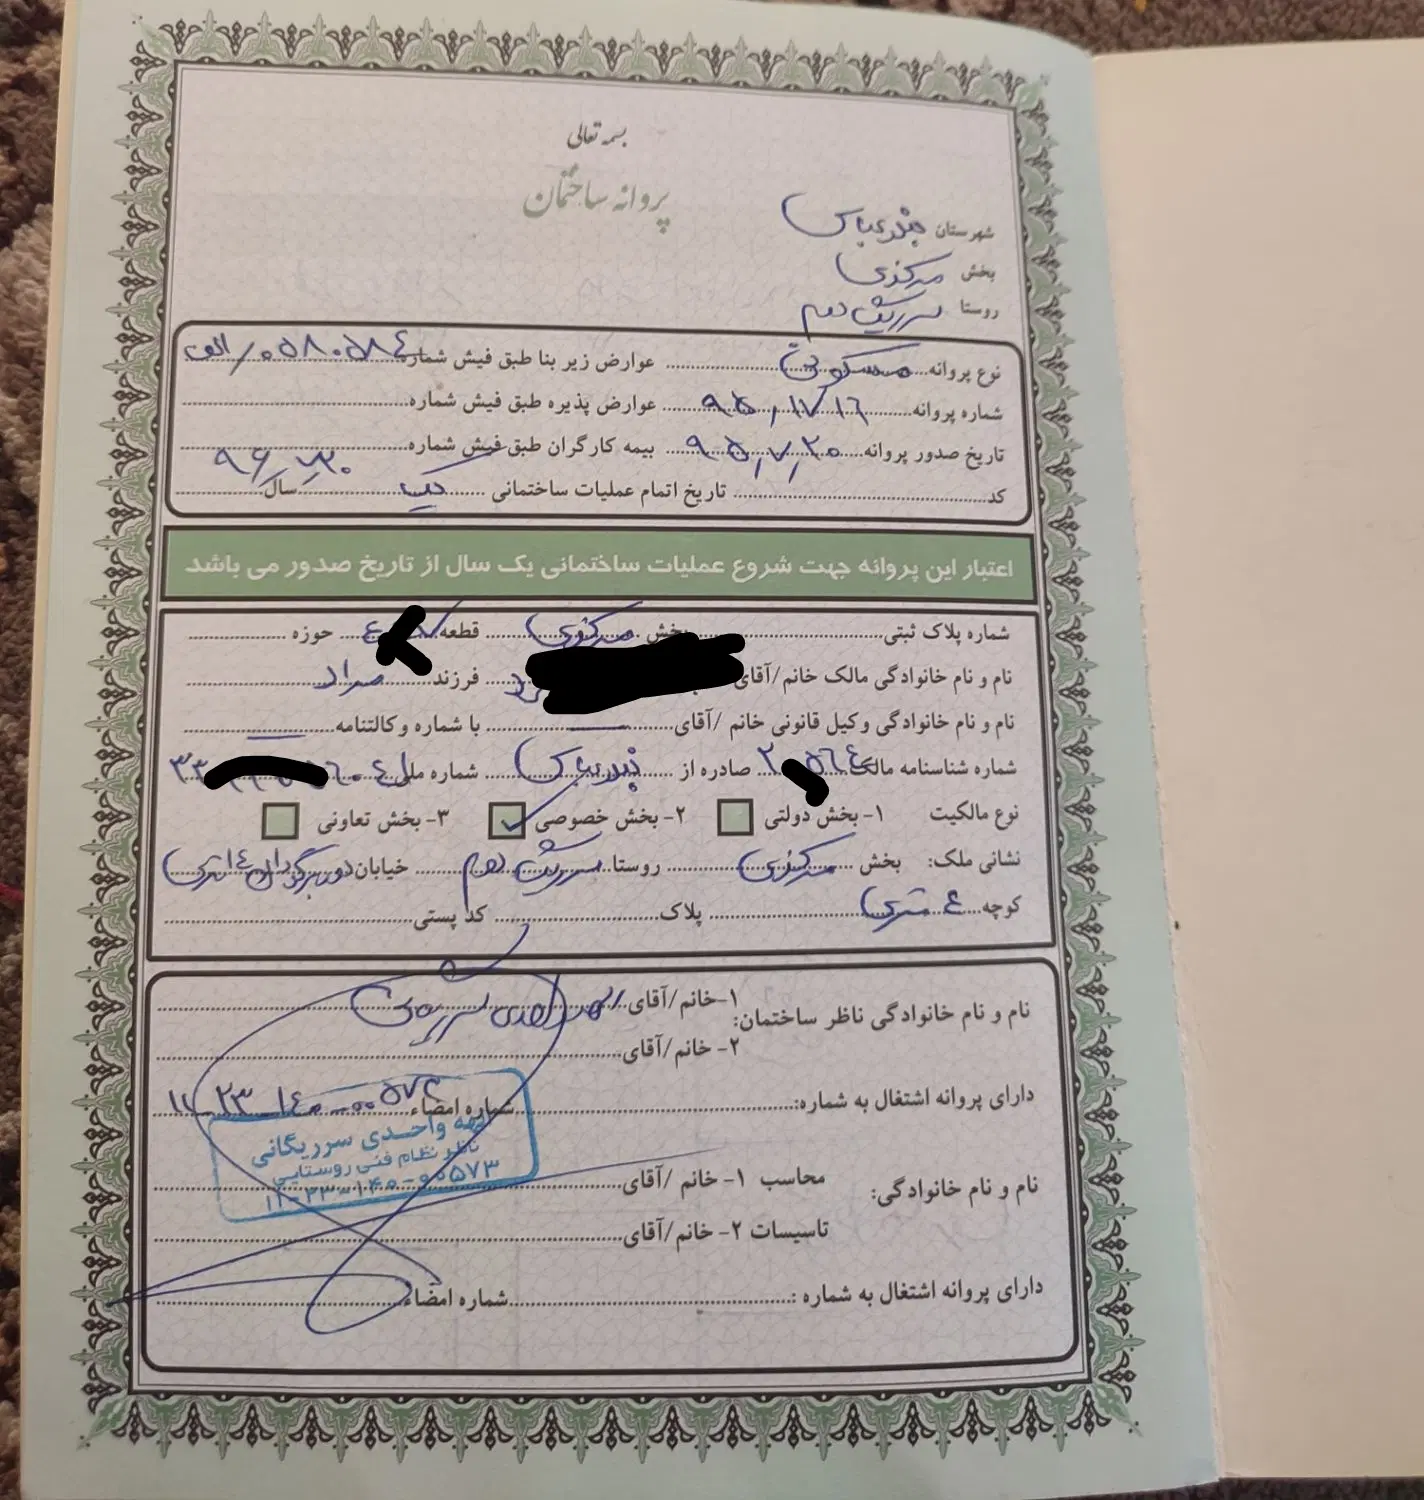 بسمه تعالی
پروانه ساختمان
شهرستان بندرعباس
بخش مرکزی
روستا سرریگ دوم
نوع پروانه مسکونی عوارض زیر بنا طبق فیش شماره ۰۵۸۰۵۸۴/الف
شماره پروانه ۹۵/۱۷۱۶ عوارض پذیره طبق فیش شماره
تاریخ صدور پروانه ۹۵/۷/۲۰ بیمه کارگران طبق فیش شماره
کد تاریخ اتمام عملیات ساختمانی یک سال ۹۶/۷/۳۰
اعتبار این پروانه جهت شروع عملیات ساختمانی یک سال از تاریخ صدور می باشد
شماره پلاک ثبتی بخش مرکزی قطعه حوزه
نام و نام خانوادگی مالک خانم/آقای فرزند مراد
نام و نام خانوادگی وکیل قانونی خانم /آقای با شماره وکالتنامه
شماره شناسنامه مالک صادره از بندرعباس شماره ملی
نوع مالکیت ۱- بخش دولتی ۲- بخش خصوصی ۳- بخش تعاونی
نشانی ملک: بخش مرکزی روستا سرریگ دوم خیابان دوربرگردان ۱۴ متری
کوچه ۶ متری پلاک کد پستی
نام و نام خانوادگی ناظر ساختمان: ۱-خانم/آقای
۲- خانم/آقای
دارای پروانه اشتغال به شماره: شماره امضاء ۱۱-۲۳-۱۴۰-۰۰۵۷۳
الهه واحدی سرریگانی
ناظر نظام فنی روستایی
۱۱-۲۳-۱۴۰-۰۰۵۷۳
نام و نام خانوادگی: محاسب ۱- خانم /آقای
تاسیسات ۲- خانم/آقای
دارای پروانه اشتغال به شماره : شماره امضاء